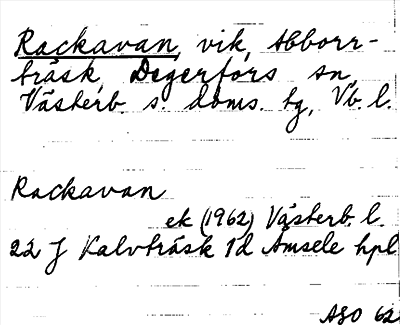 Rackavan, vik, Abborr-
träsk, Degerfors sn,
Västerb. s. doms. tg, Vb. l.
Rackavan
ek (1962) Västerb. l.
22 J Kalvträsk 1d Åmsele hpl
ASO 62